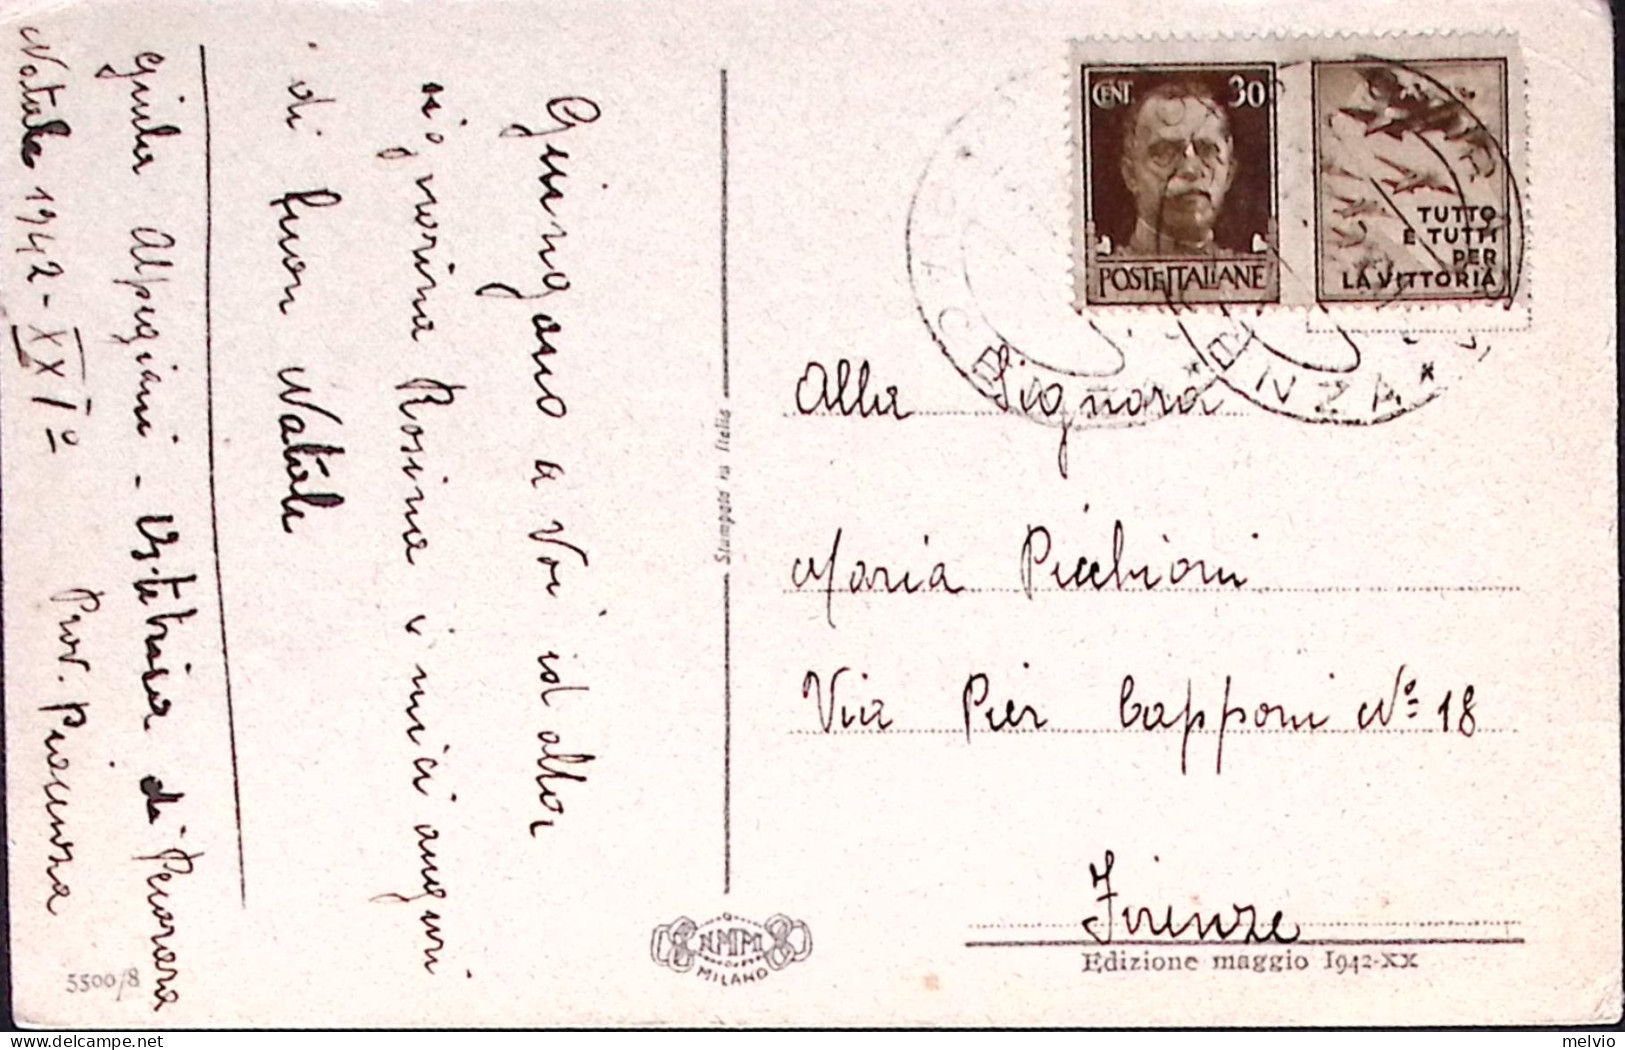 Giungano a Voi ed alla
signorina Rosina i miei auguri
di buon Natale
Giulia Alpegiani - di Pecorara
Natale 1942 - XXI° Prov. Piacenza
5500/8
Stampata in Italia
N.M.M.
MILANO
CENT. 30
POSTE ITALIANE
TUTTO
E TUTTI
PER
LA VITTORIA
Alla Signora
Maria Picchioni
Via Pier Capponi N° 18
Firenze
Edizione maggio 1942-XX
melvio